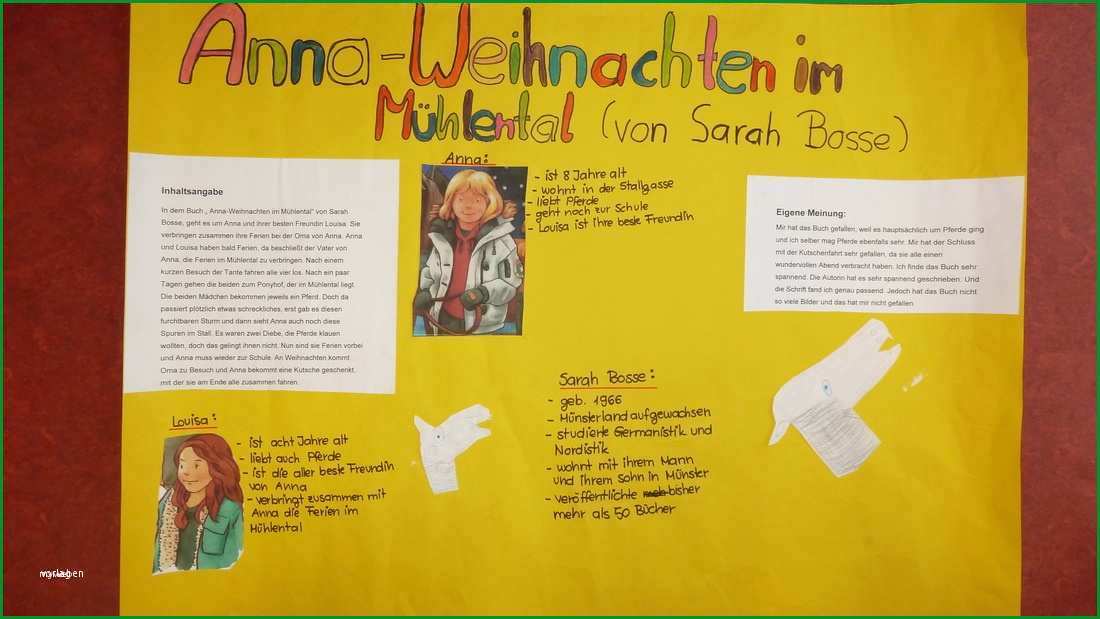 Anna-Weihnachten im
Mühlental (von Sarah Bosse)
Inhaltsangabe
In dem Buch „ Anna-Weihnachten im Mühlental“ von Sarah
Bosse, geht es um Anna und ihrer besten Freundin Louisa. Sie
verbringen zusammen ihre Ferien bei der Oma von Anna. Anna
und Louisa haben bald Ferien, da beschließt der Vater von
Anna, die Ferien im Mühlental zu verbringen. Nach einem
kurzen Besuch der Tante fahren alle vier los. Nach ein paar
Tagen gehen die beiden zum Ponyhof, der im Mühlental liegt.
Die beiden Mädchen bekommen jeweils ein Pferd. Doch da
passiert plötzlich etwas schreckliches, erst gab es diesen
furchtbaren Sturm und dann sieht Anna auch noch diese
Spuren im Stall. Es waren zwei Diebe, die Pferde klauen
wollten, doch das gelingt ihnen nicht. Nun sind sie Ferien vorbei
und Anna muss wieder zur Schule. An Weihnachten kommt
Oma zu Besuch und Anna bekommt eine Kutsche geschenkt,
mit der sie am Ende alle zusammen fahren.
Anna:
- ist 8 Jahre alt
- wohnt in der Stallgasse
- liebt Pferde
- geht noch zur Schule
- Louisa ist ihre beste Freundin
Eigene Meinung:
Mir hat das Buch gefallen, weil es hauptsächlich um Pferde ging
und ich selber mag Pferde ebenfalls sehr. Mir hat der Schluss
mit der Kutschenfahrt sehr gefallen, da sie alle einen
wundervollen Abend verbracht haben. Ich finde das Buch sehr
spannend. Die Autorin hat es sehr spannend geschrieben. Und
die Schrift fand ich genau passend. Jedoch hat das Buch nicht
so viele Bilder und das hat mir nicht gefallen
Louisa:
- ist acht Jahre alt
- liebt auch Pferde
- ist die aller beste Freundin
von Anna
- verbringt zusammen mit
Anna die Ferien im
Mühlental
Sarah Bosse:
- geb. 1966
- Münsterland aufgewachsen
- studierte Germanistik und
Nordistik
- wohnt mit ihrem Mann
und ihrem Sohn in Münster
- veröffentlichte bisher
mehr als 50 Bücher
vorlagen